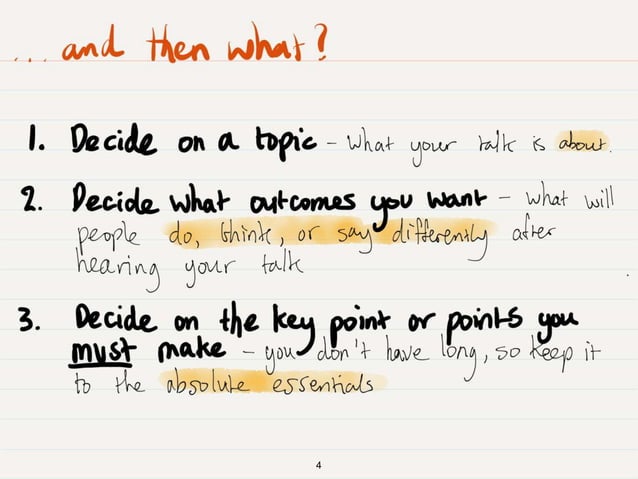 ... and then what?
1. Decide on a topic - what your talk is about.
2. Decide what outcomes you want - what will
people do, think, or say differently after
hearing your talk
3. Decide on the key point or points you
must make - you don't have long, so keep it
to the absolute essentials
4